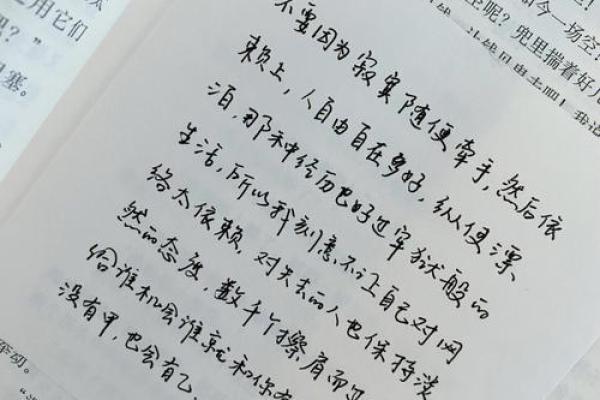 用它们
？”
塞。
今一场空
空呢？兜里揣着好几
见鬼去吧！我
不要因为寂寞随便牵手，然后依
赖上，人自由自在多好，纵使漂
泊，那种经历也好过牢狱般的
生活，所以我刻意不让自己对网
络太依赖，对失去的人也保持淡
然的态度，数千个擦肩而
给谁机会谁就和你有
没有甲，也会有乙、
动。